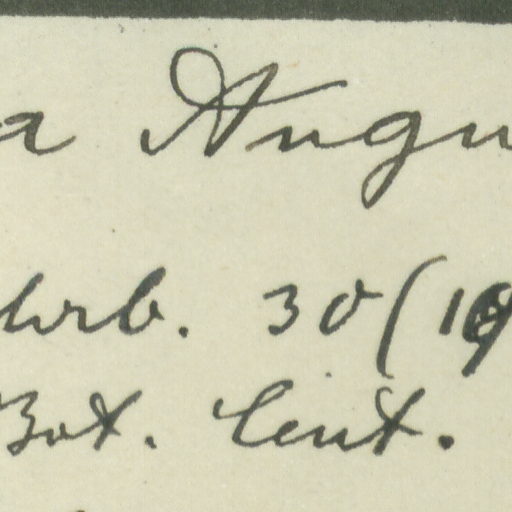 a Augu
hrb. 30 (19
Bot. Cent.